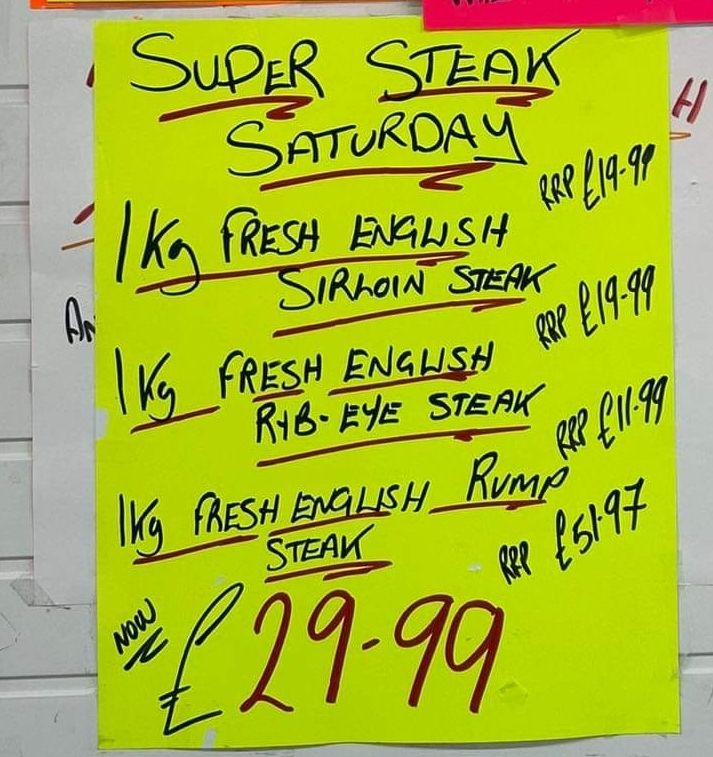 SUPER STEAK
SATURDAY
RRP £19-99
1Kg FRESH ENGLISH
SIRLOIN STEAK
RRP £19-99
1Kg FRESH ENGLISH
RYB-EYE STEAK
RRP £11.99
1Kg FRESH ENGLISH RUMP
STEAK
RRP £51.97
NOW
£29.99
H